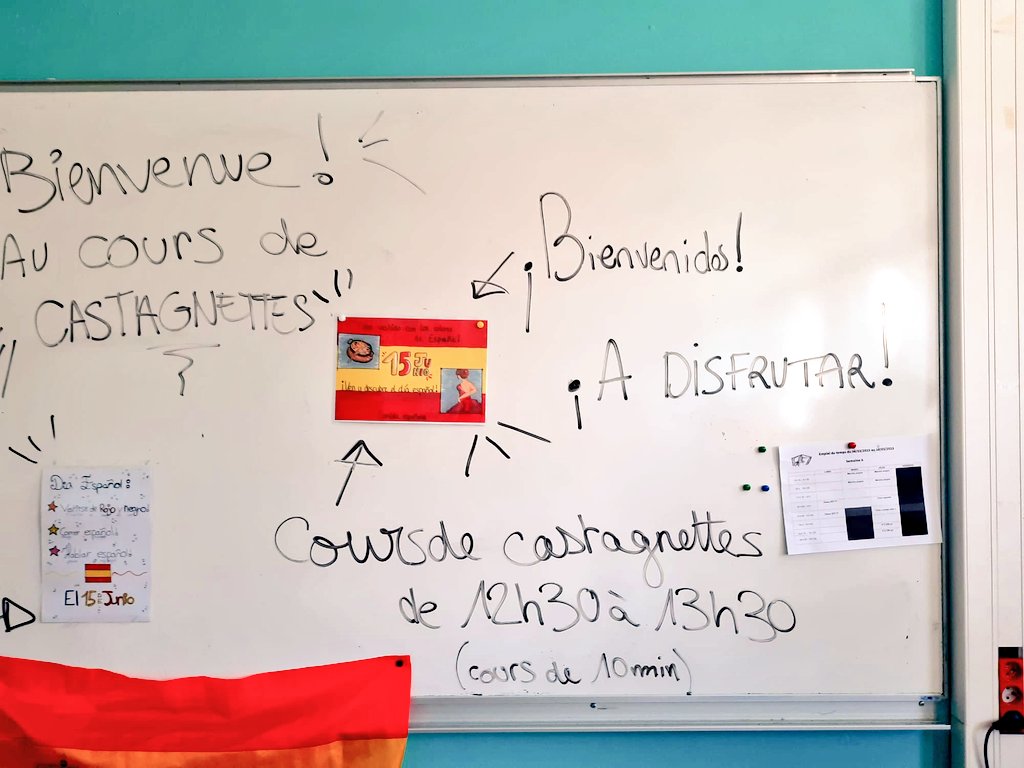 Bienvenue !
Au cours de
CASTAGNETTES
¡Bienvenidos!
¡A DISFRUTAR!
15 JUNIO
¡Ven y descubre el día español!
Día Español :
Vestirse de Rojo y negro
Comer español
Hablar español
El 15 de Junio
Cours de castagnettes
de 12h30 à 13h30
(cours de 10min)